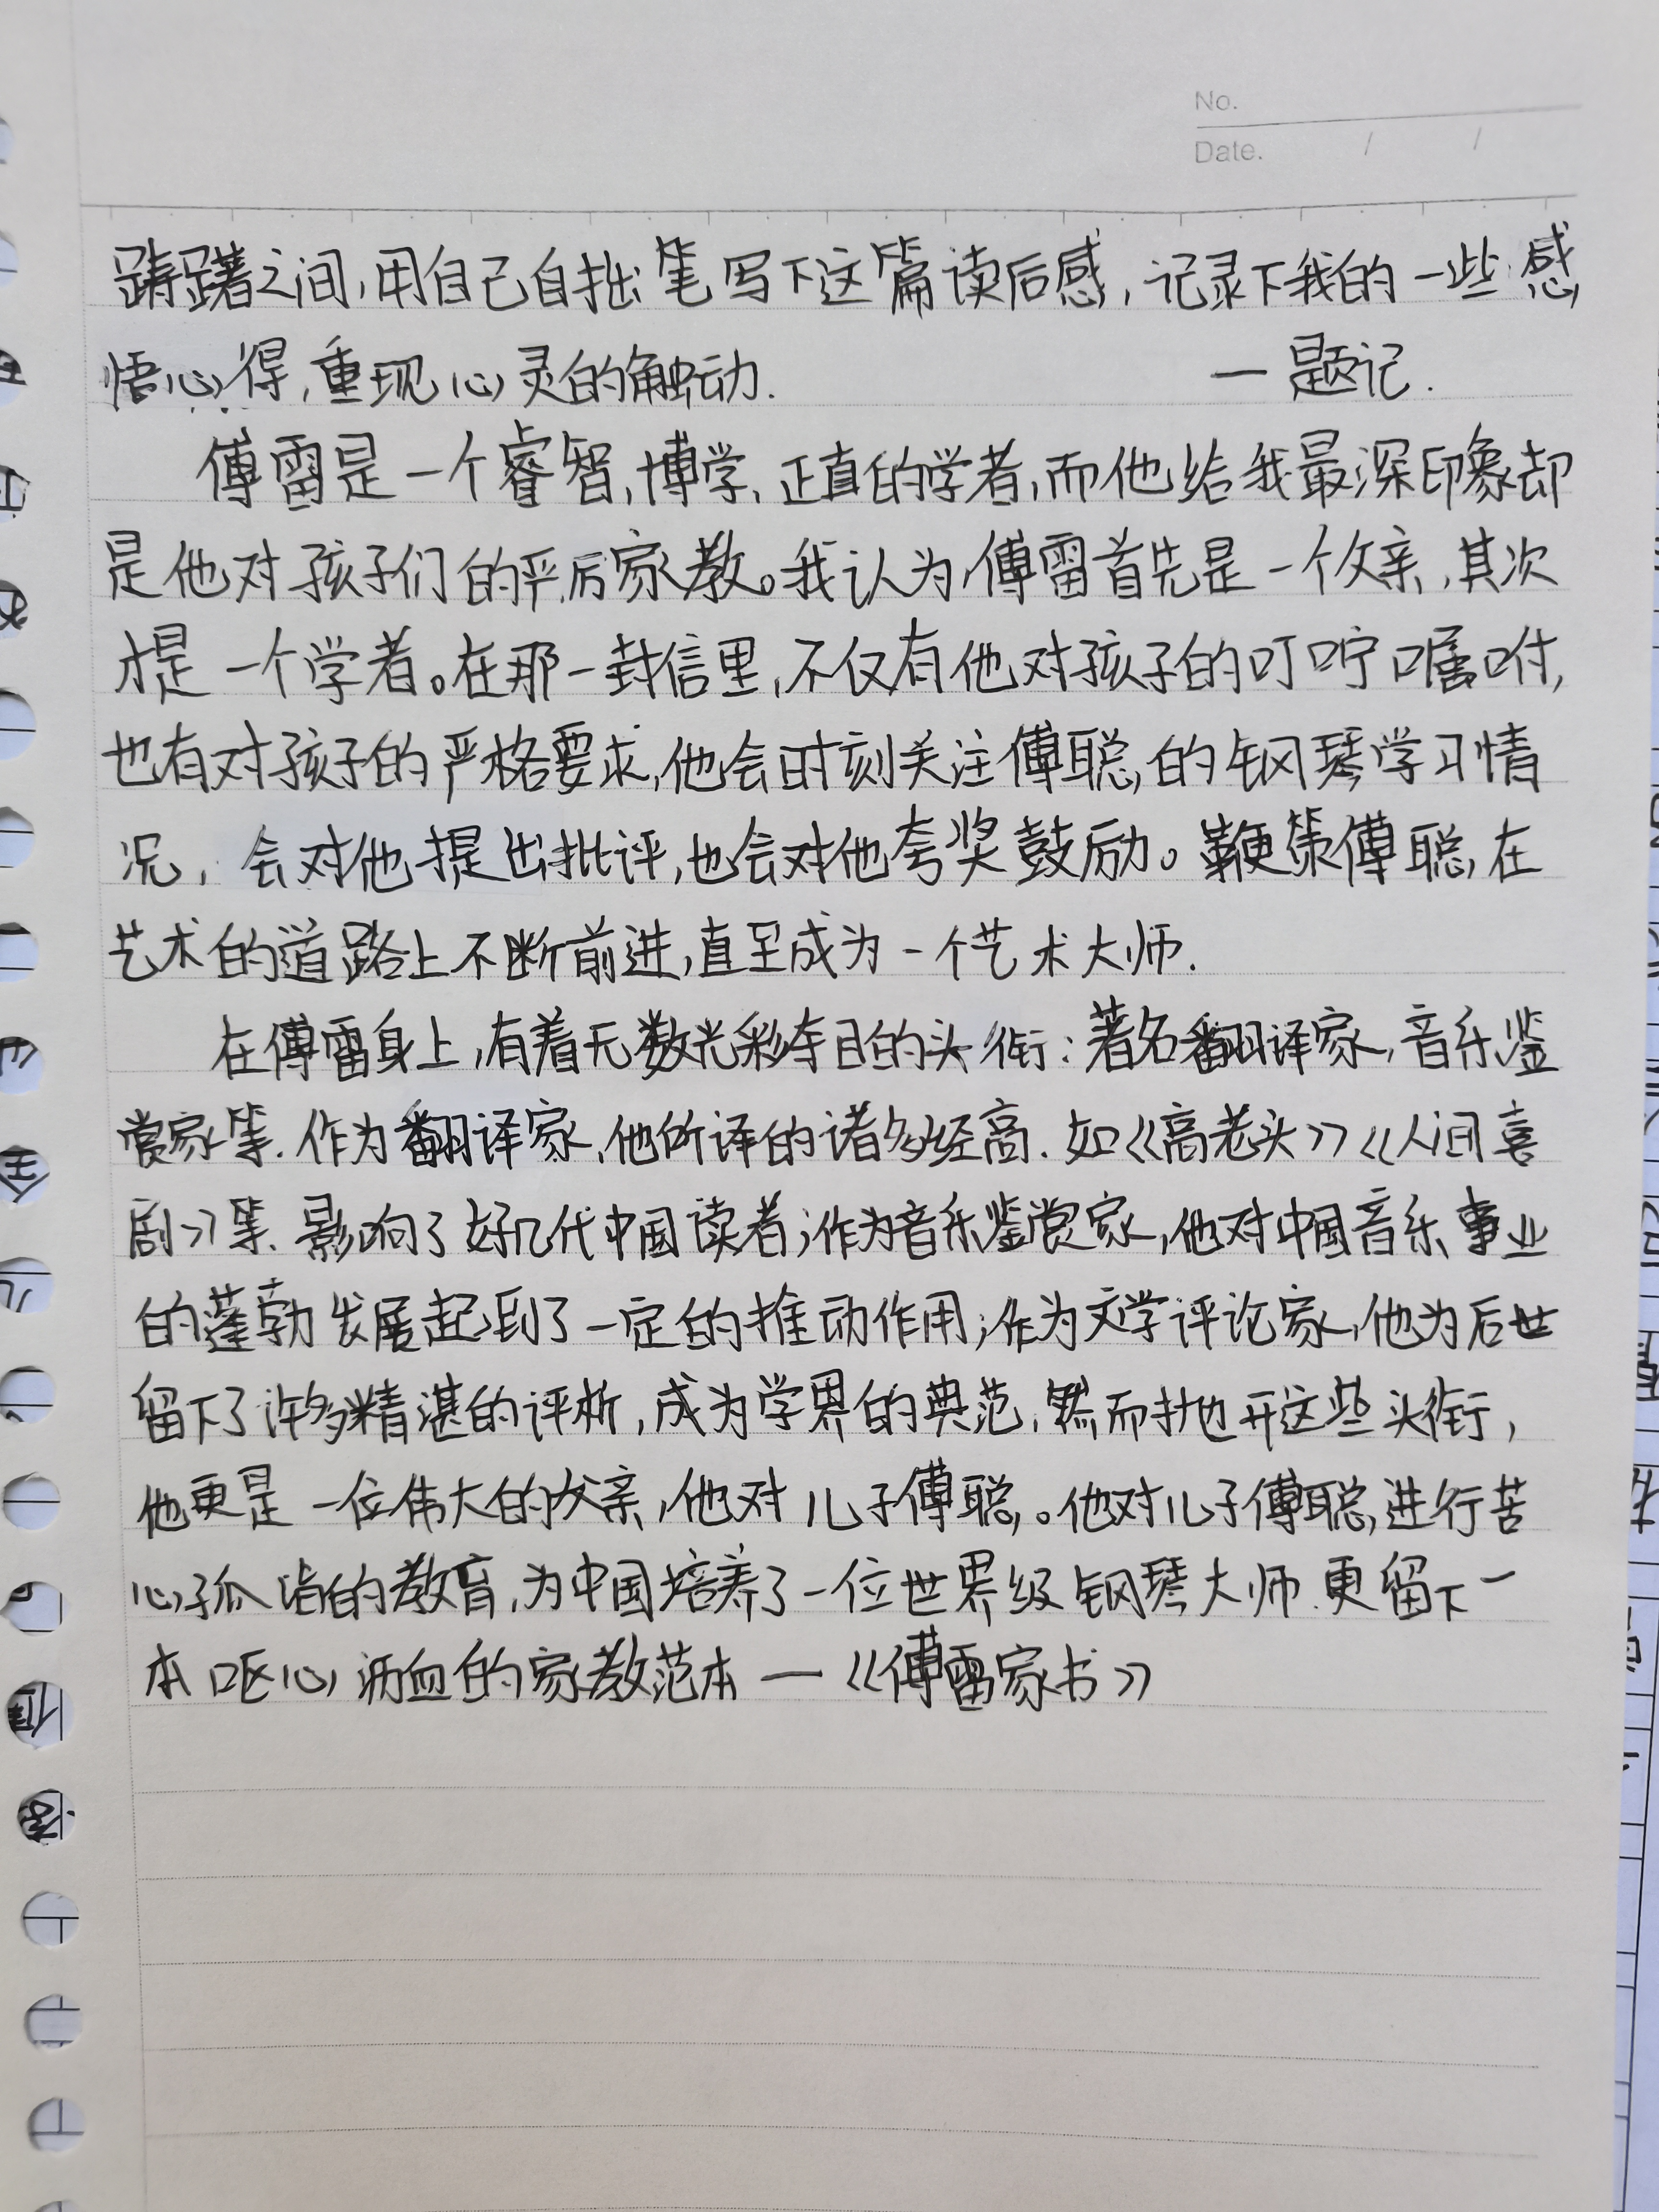 No.
Date. / /
踌躇之间,用自己自拙笔写下这篇读后感,记录下我的一些感
悟心得,重现心灵的触动.  一题记.
傅雷是一个睿智,博学、正直的学者,而他给我最深印象却
是他对孩子们的严厉家教。我认为,傅雷首先是一个父亲,其次
才是一个学者。在那一封信里,不仅有他对孩子的叮咛嘱咐,
也有对孩子的严格要求,他会时刻关注傅聪的钢琴学习情
况,会对他提出批评,也会对他夸奖鼓励。鞭策傅聪在
艺术的道路上不断前进,直至成为一个艺术大师.
在傅雷身上,有着无数光彩夺目的头衔:著名翻译家,音乐鉴
赏家等.作为翻译家,他所译的诸多经高.如《高老头》《人间喜
剧》等.影响了好几代中国读者;作为音乐鉴赏家,他对中国音乐事业
的蓬勃发展起到了一定的推动作用;作为文学评论家,他为后世
留下了许多精湛的评析,成为学界的典范,然而抛开这些头衔,
他更是一位伟大的父亲,他对儿子傅聪。他对儿子傅聪进行苦
心孤诣的教育,为中国培养了一位世界级钢琴大师.更留下一
本呕心沥血的家教范本一《傅雷家书》